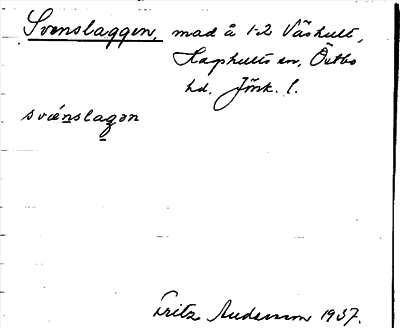 Svenslaggen, mad å 1-2 Våshult,
Haghults sn, Östbo
hd. Jönk. l.
svénslagən
Fritz Andersson 1937.